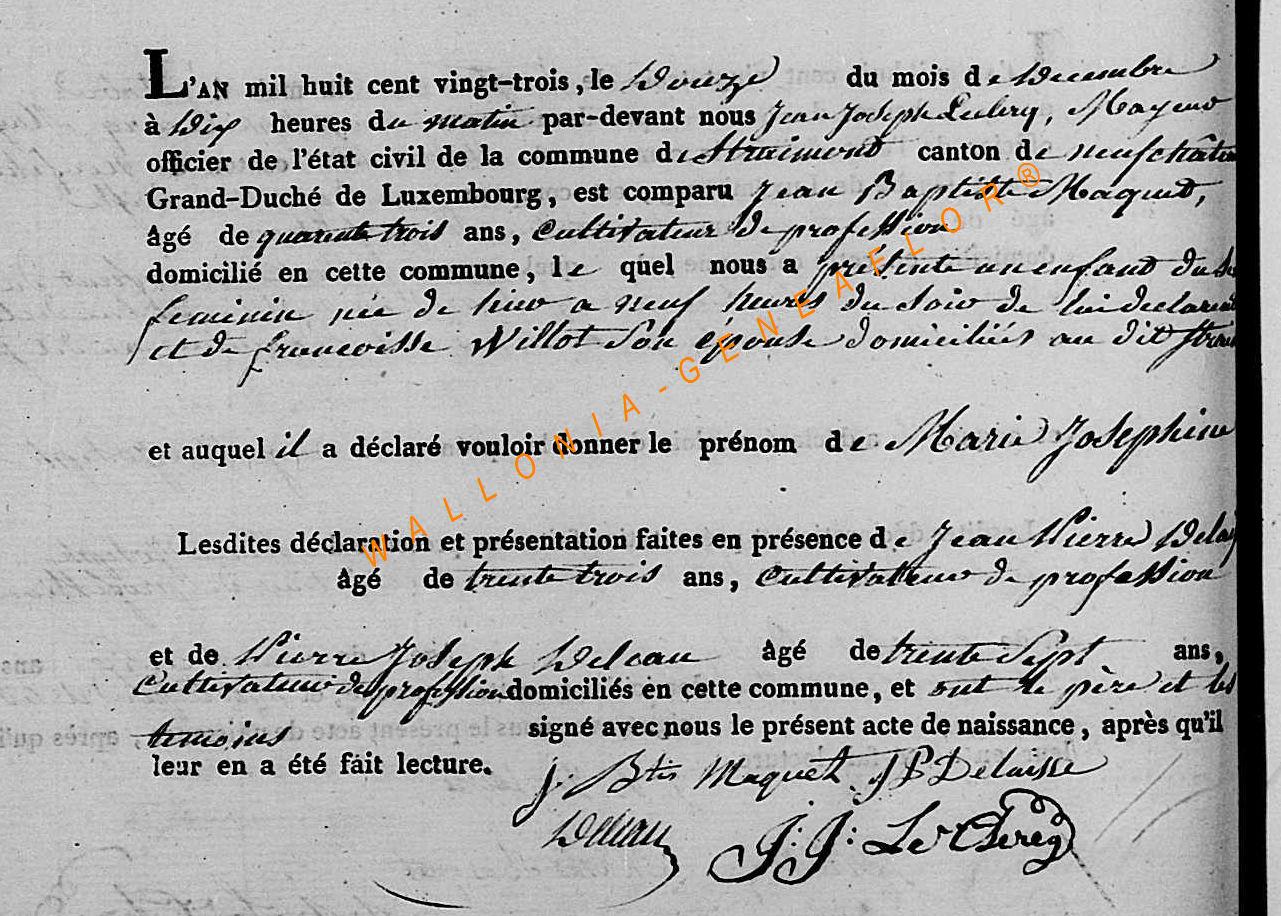 L'AN mil huit cent vingt-trois, le Douze du mois de Decembre
à Dix heures du matin par-devant nous Jean Joseph Leclerq, Mayeur
officier de l'état civil de la commune de Straimont canton de neufchâteau
Grand-Duché de Luxembourg, est comparu Jean Baptiste Maquet,
âgé de quarente trois ans, Cultivateur de profession
domicilié en cette commune, le quel nous a présenté un enfant du
feminin née de hier a neuf heures du soir de lui declarant
et de francoisse Willot Son épouse domiciliés au dit
et auquel il a déclaré vouloir donner le prénom de Marie Josephine
Lesdites déclaration et présentation faites en présence de Jean Pierre
âgé de trente trois ans, Cultivateur de profession
et de Pierre Joseph Deleau âgé de trente Sept ans,
Cultivateur de profession domiciliés en cette commune, et ont le père et les
temoins signé avec nous le présent acte de naissance, après qu'il
leur en a été fait lecture. j. Bte Maquet J P Delaisse
Deleau J: J: Le Clereq
WALLONIA-GENEAFLOR®